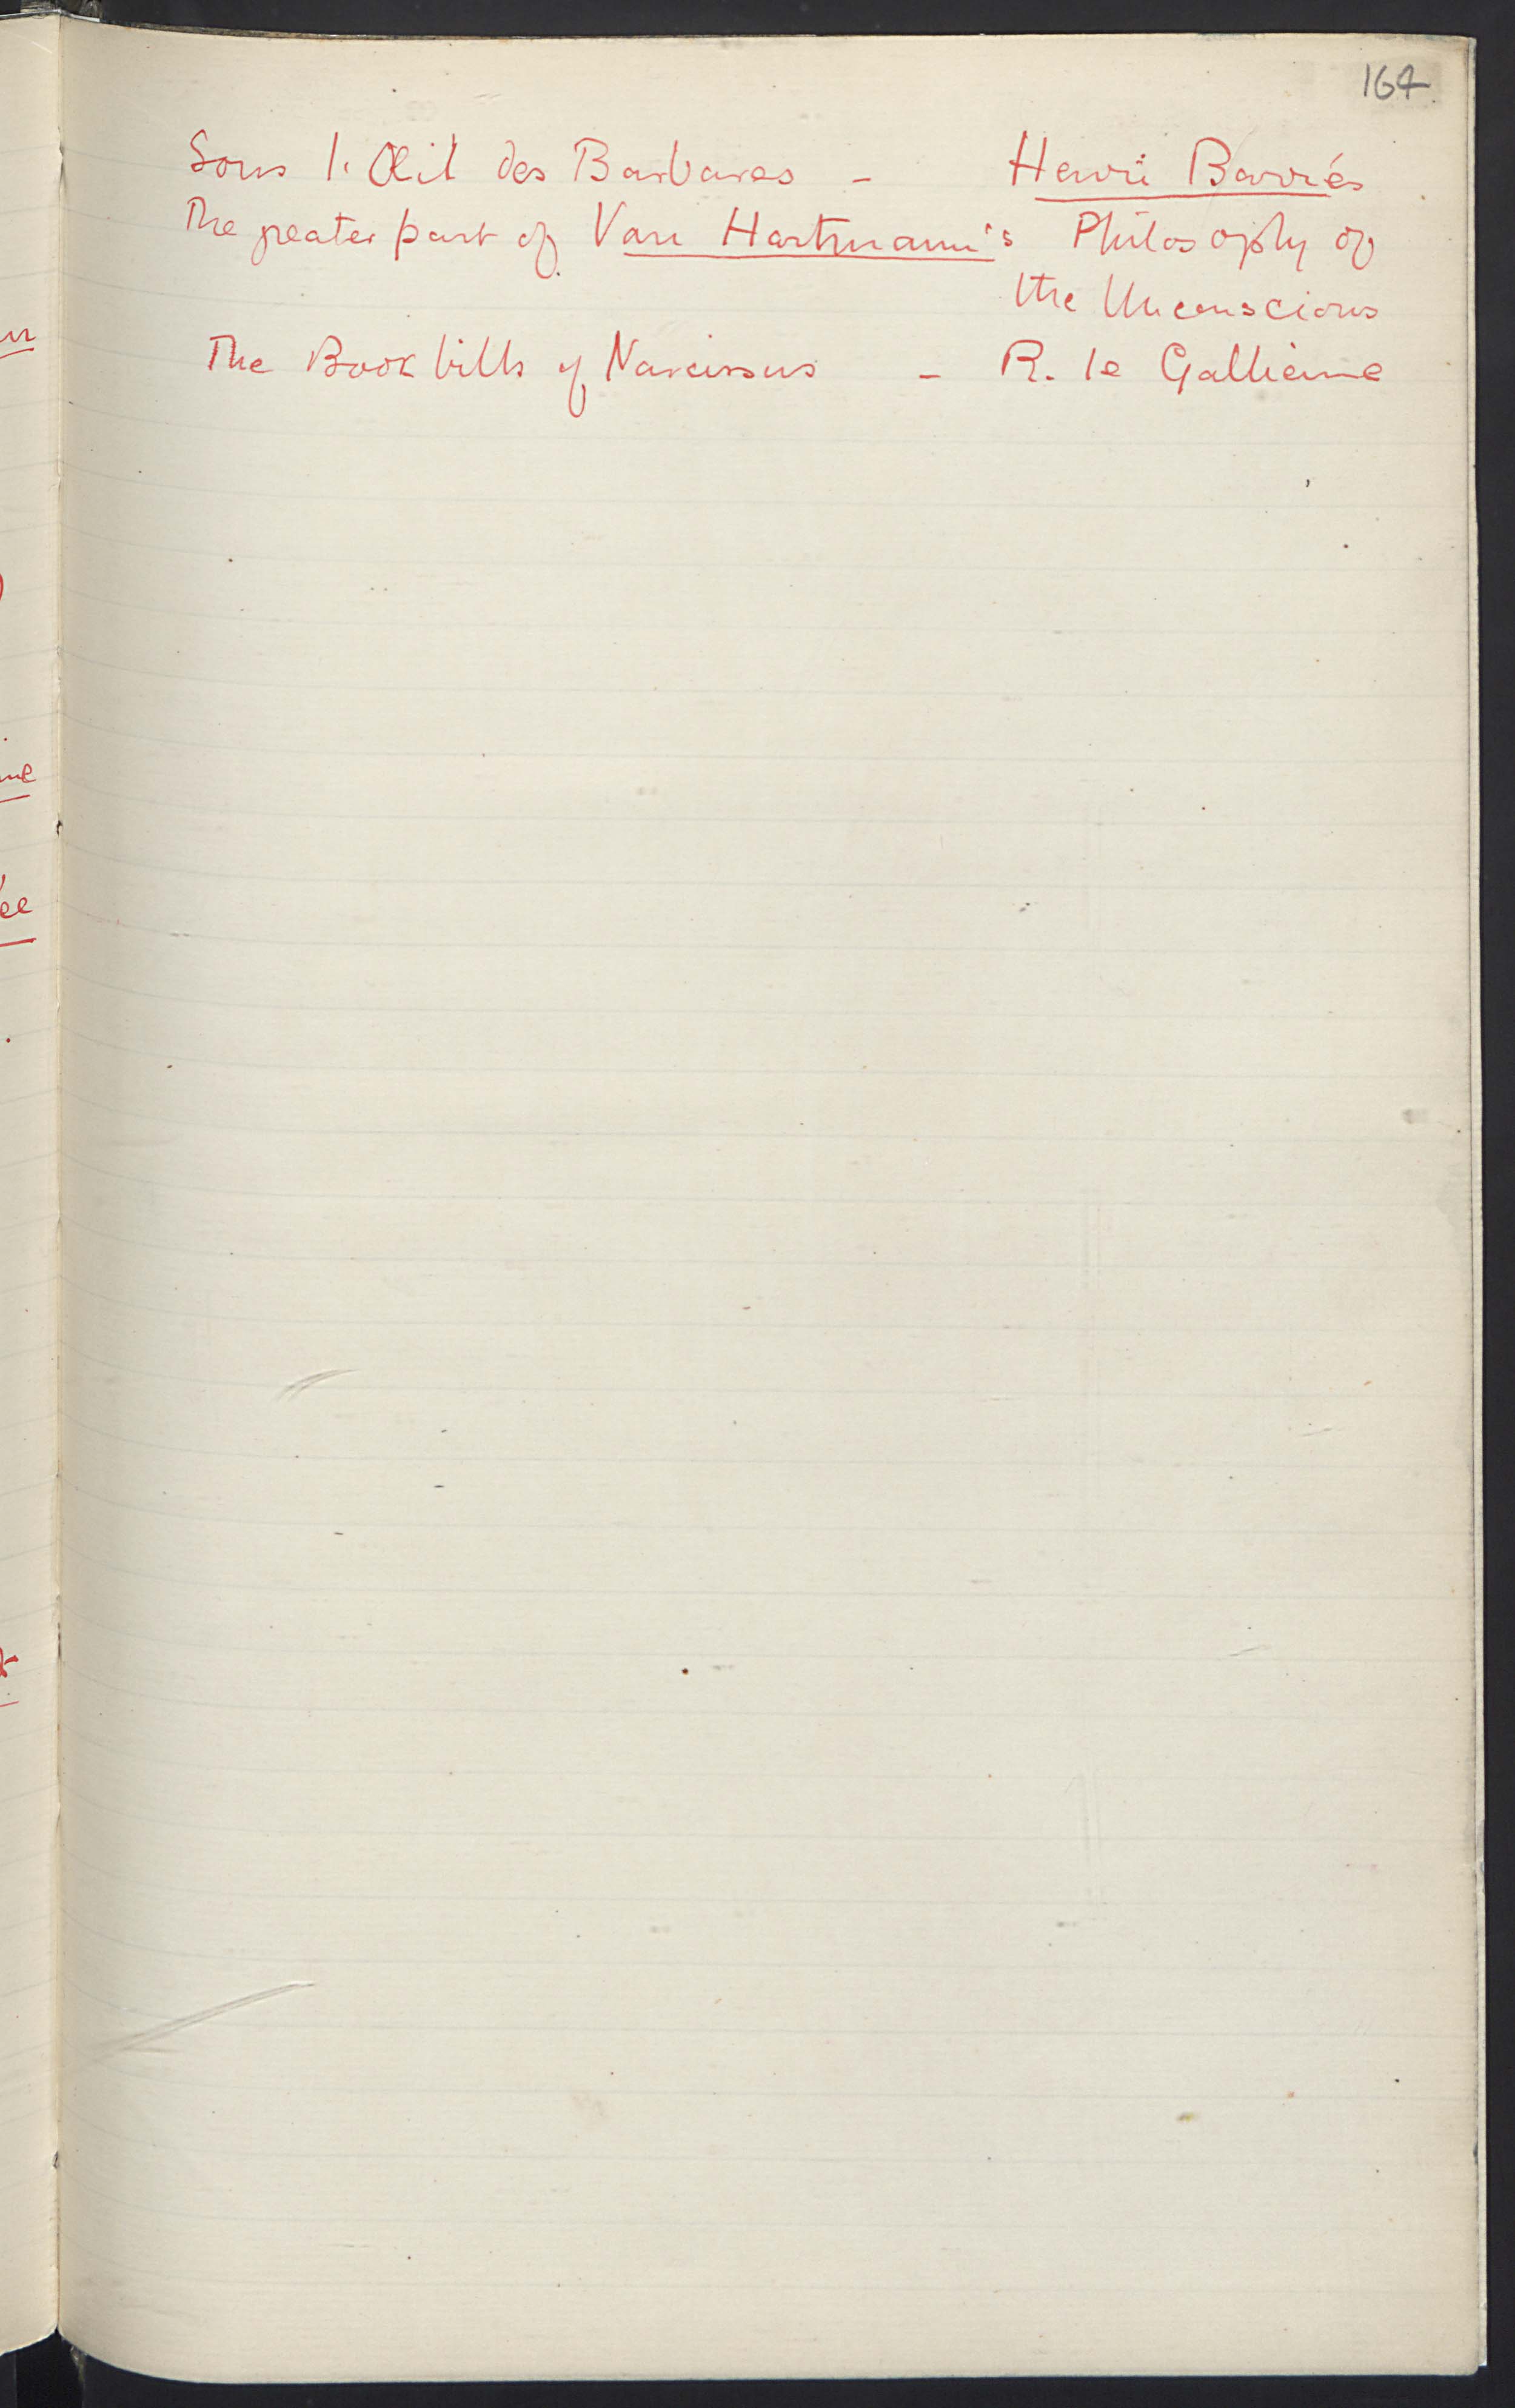 164
Sous l'Œil des Barbares - Henri Barrés
The greater part of Van Hartmann's Philosophy of
the Unconscious
The Book bills of Narcissus - R. le Gallienne